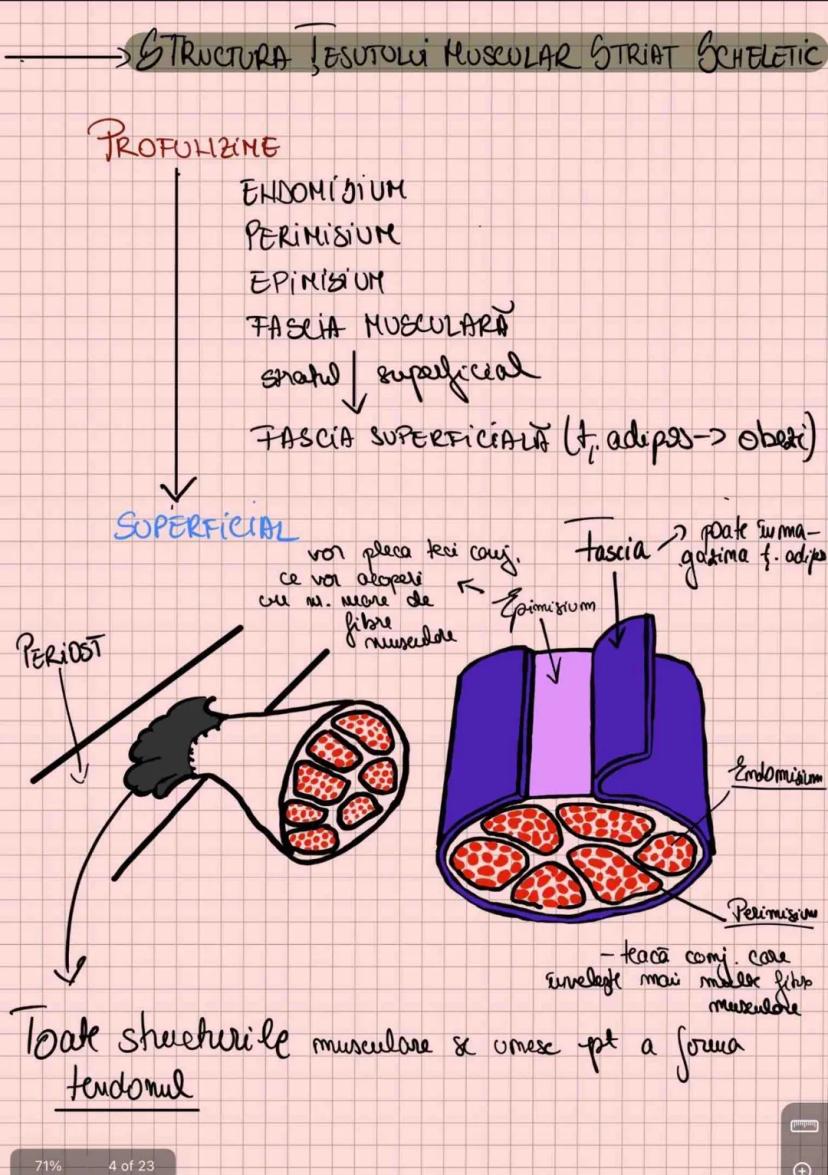 STRUCTURA ȚESUTULUI MUSCULAR STRIAT SCHELETIC
PROFUNZIME
ENDOMISIUM
PERIMISIUM
EPIMISIUM
FASCIA MUSCULARĂ
stratul superficial
FASCIA SUPERFICIALĂ (ț. adipos -> obezi)
SUPERFICIAL
vor pleca teci conj.
ce vor acoperi
un nr. mare de
fibre
musculare
Epimisium
Fascia
poate înma-
gazina ț. adipos
PERIOST
Endomisium
Perimisium
- teacă conj. care
învelește mai multe fibre
musculare
Toate structurile musculare se unesc pt a forma
tendonul
71%
4 of 23